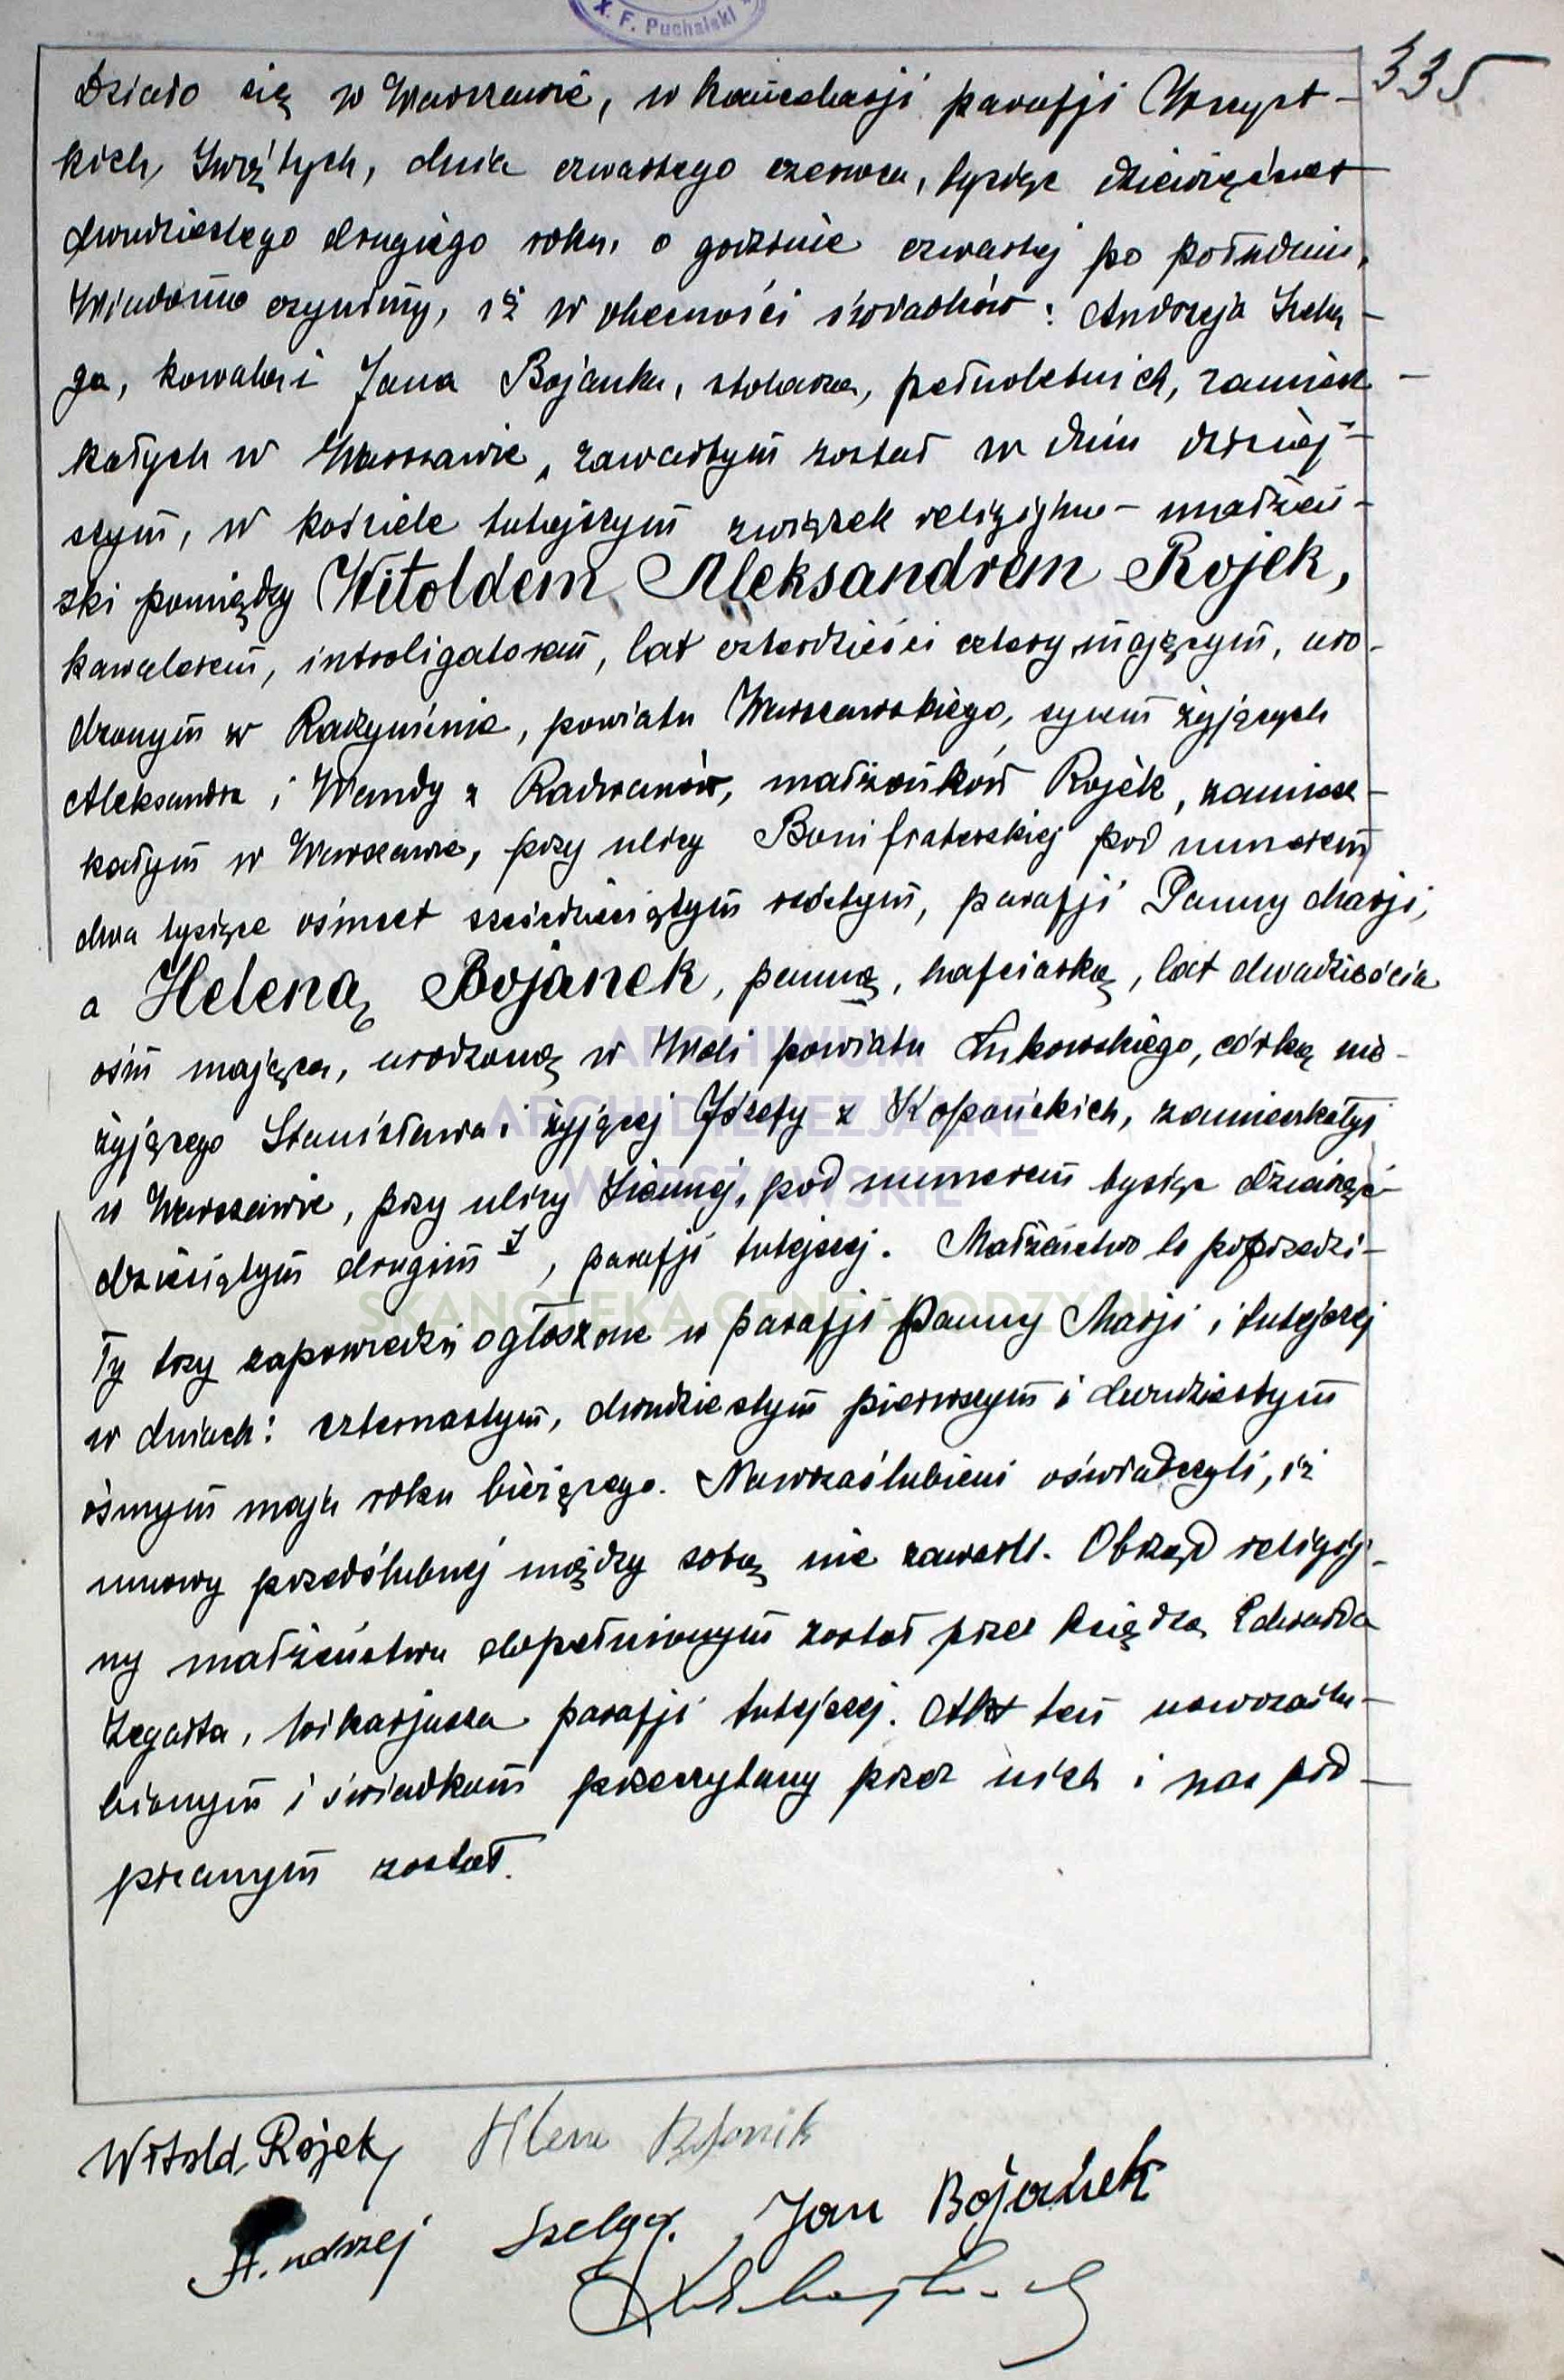 X. F. Puchalski
335
Działo się w Warszawie, w kancelarji parafji Wszyst-
kich Świętych, dnia czwartego czerwca, tysiąc dziewięćset
dwudziestego drugiego roku, o godzinie czwartej po południu.
Wiadomo czynimy, iż w obecności świadków: Andrzeja Szelą-
ga, kowala i Jana Bojanka, stolarza, pełnoletnich, zamiesz-
kałych w Warszawie, zawartym został w dniu dzisiej-
szym, w kościele tutejszym związek religijno-małżeń-
ski pomiędzy Witoldem Aleksandrem Rojek,
kawalerem, introligatorem, lat czterdzieści cztery mającym, uro-
dzonym w Radzyminie, powiatu Warszawskiego, synem żyjących
Aleksandra i Wandy z Radwanów, małżonków Rojek, zamiesz-
kałym w Warszawie, przy ulicy Bonifraterskiej pod numerem
dwa tysiące ośmset sześćdziesiątym szóstym, parafji Panny Marji,
a Heleną Bojanek, panną, hafciarką, lat dwadzieścia
ośm mającą, urodzoną w Woli powiatu Łukowskiego, córką nie-
żyjącego Stanisława i żyjącej Józefy z Kopańskich, zamieszkałej
w Warszawie, przy ulicy Siennej, pod numerem tysiąc dziewięć-
dziesiątym drugim, parafji tutejszej. Małżeństwo to poprzedzi-
ły trzy zapowiedzi ogłoszone w parafji Panny Marji i tutejszej
w dniach: czternastym, dwudziestym pierwszym i dwudziestym
ósmym maja roku bieżącego. Nowozaślubieni oświadczyli, iż
umowy przedślubnej między sobą nie zawarli. Obrzęd religij-
ny małżeństwa dopełnionym został przez księdza Edwarda
Żegarta, wikarjusza parafji tutejszej. Akt ten nowozaślu-
bionym i świadkom przeczytany przez nich i nas pod-
pisanym został.
Witold Rojek Helena
Andrzej Szeląg. Jan Bojanek
ARCHIWUM
ARCHIDIECEZJALNE
WARSZAWSKIE
SKANOTEKA.GENEALODZY.PL